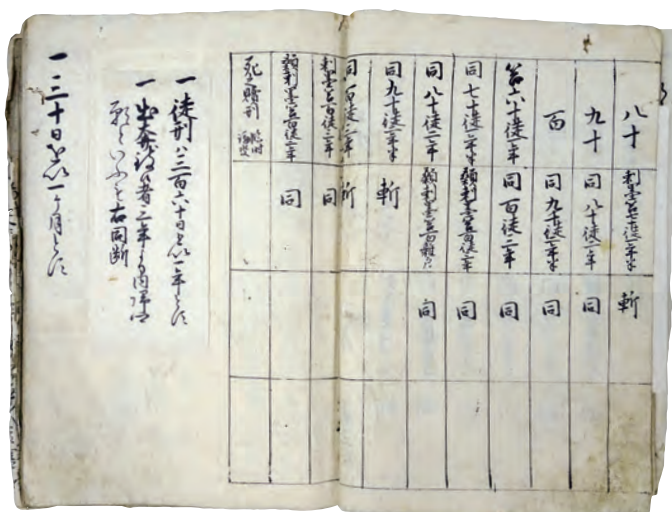 八十
刺墨笞七十徒一年半
斬
九十
同八十徒二年
同
百
同九十徒二年半
同
笞六十徒一年
同百徒三年
同
同七十徒一年半
額刺墨笞百徒三年
同
同八十徒二年
額刺墨笞百雜戸
同
同九十徒二年半
斬
同百徒三年
斬
刺墨笞百徒三年
同
額刺墨笞百徒三年
同
贖刑
一 徒刑ハ三百六十日を以一年とす
一 出奔 者二年より内
右同断
一 三十日を以一ケ月とす